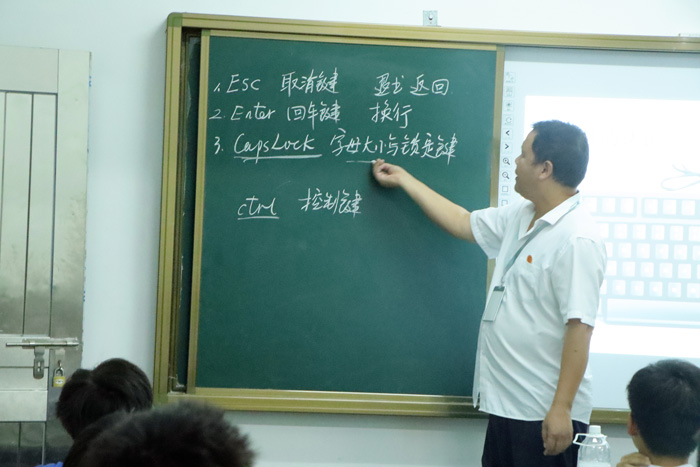 1. Esc 取消键 退出 返回
2. Enter 回车键 换行
3. CapsLock 字母大小写锁定键
ctrl 控制键